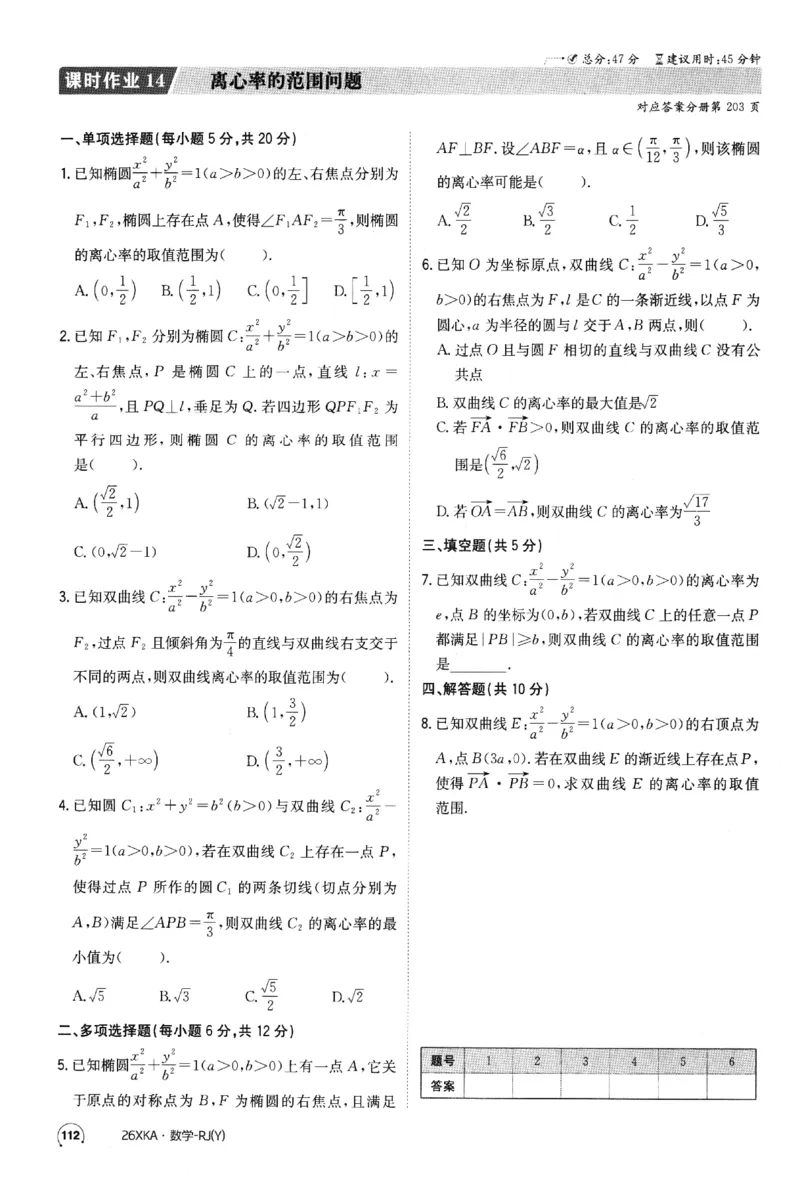 总分:47分 建议用时:45分钟
课时作业 14 离心率的范围问题
对应答案分册第 203 页
一、单项选择题(每小题 5 分,共 20 分)
1. 已知椭圆 x²/a² + y²/b² =1(a>b>0)的左、右焦点分别为
F₁,F₂,椭圆上存在点 A,使得∠F₁AF₂= π/3,则椭圆
的离心率的取值范围为( ).
A. (0, 1/2) B. (1/2, 1) C. (0, 1/2] D. [1/2, 1)
2. 已知 F₁,F₂ 分别为椭圆 C: x²/a² + y²/b² =1(a>b>0)的
左、右焦点,P 是椭圆 C 上的一点,直线 l:x=
(a²+b²)/a,且 PQ⊥l,垂足为 Q.若四边形 QPF₁F₂ 为
平行四边形,则椭圆 C 的离心率的取值范围
是( ).
A. (√2/2, 1) B. (√2−1,1)
C. (0,√2−1) D. (0, √2/2)
3. 已知双曲线 C: x²/a² − y²/b² =1(a>0,b>0)的右焦点为
F₂,过点 F₂ 且倾斜角为 π/4 的直线与双曲线右支交于
不同的两点,则双曲线离心率的取值范围为( ).
A. (1,√2) B. (1, 3/2)
C. (√6/2, +∞) D. (3/2, +∞)
4. 已知圆 C₁:x²+y²=b²(b>0)与双曲线 C₂: x²/a² −
y²/b² =1(a>0,b>0),若在双曲线 C₂ 上存在一点 P,
使得过点 P 所作的圆 C₁ 的两条切线(切点分别为
A,B)满足∠APB= π/3,则双曲线 C₂ 的离心率的最
小值为( ).
A. √5 B. √3 C. √5/2 D. √2
二、多项选择题(每小题 6 分,共 12 分)
5. 已知椭圆 x²/a² + y²/b² =1(a>b>0)上有一点 A,它关
于原点的对称点为 B,F 为椭圆的右焦点,且满足
AF⊥BF.设∠ABF=α,且 α∈(π/12, π/3),则该椭圆
的离心率可能是( ).
A. √2/2 B. √3/2 C. 1/2 D. √5/3
6. 已知 O 为坐标原点,双曲线 C: x²/a² − y²/b² =1(a>0,
b>0)的右焦点为 F,l 是 C 的一条渐近线,以点 F 为
圆心,a 为半径的圆与 l 交于 A,B 两点,则( ).
A. 过点 O 且与圆 F 相切的直线与双曲线 C 没有公
共点
B. 双曲线 C 的离心率的最大值是√2
C. 若 FA→ · FB→ >0,则双曲线 C 的离心率的取值范
围是(√6/2, √2)
D. 若 OA→ = AB→,则双曲线 C 的离心率为 √17/3
三、填空题(共 5 分)
7. 已知双曲线 C: x²/a² − y²/b² =1(a>0,b>0)的离心率为
e,点 B 的坐标为(0,b),若双曲线 C 上的任意一点 P
都满足|PB|≥b,则双曲线 C 的离心率的取值范围
是________.
四、解答题(共 10 分)
8. 已知双曲线 E: x²/a² − y²/b² =1(a>0,b>0)的右顶点为
A,点 B(3a,0).若在双曲线 E 的渐近线上存在点 P,
使得 PA→ · PB→ =0,求双曲线 E 的离心率的取值
范围.
题号 1 2 3 4 5 6
答案
112 26XKA·数学-RJ(Y)